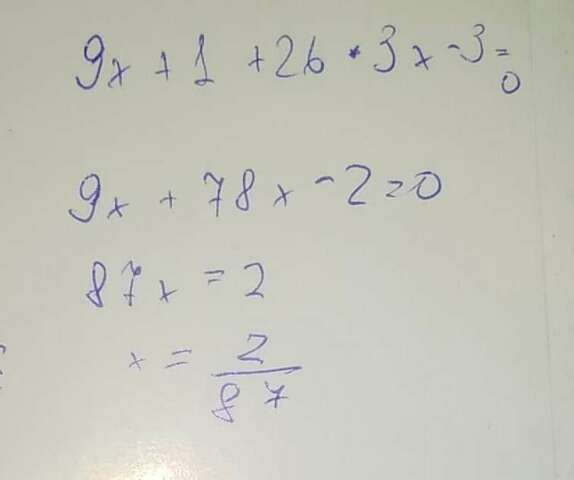 9x + 1 + 26 • 3x - 3 = 0
9x + 78x - 2 = 0
87x = 2
x = 2/87